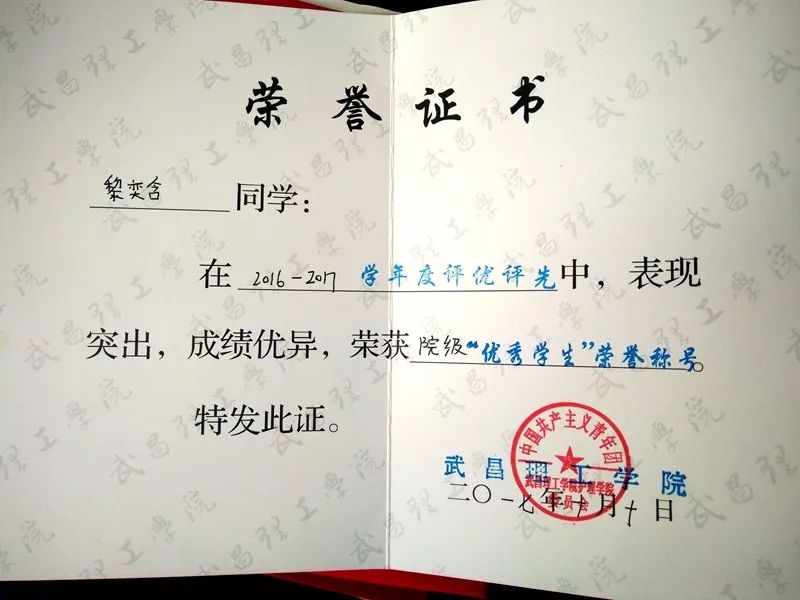 荣誉证书
黎奕含 同学：
在 2016-2017 学年度评优评先中，表现
突出，成绩优异，荣获院级“优秀学生”荣誉称号。
特发此证。
中国共产主义青年团
武昌理工学院
武昌理工学院护理学院
委员会
二〇一七年十月十日
武昌理工學院